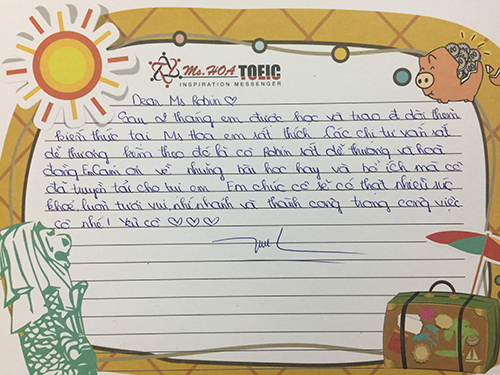 Ms. HOA TOEIC
INSPIRATION MESSENGER
Dear Ms Robin ♡
Sau 2 tháng em được học và trao dồi thêm
kiến thức tại Ms Hoa em rất thích. Các chị tư vấn rất
dễ thương kèm theo đó là cô Robin rất dễ thương và hoà
đồng. Em cảm ơn về những bài học hay và bổ ích mà cô
đã truyền tải cho tụi em. Em chúc cô sẽ có thật nhiều sức
khoẻ, luôn tươi vui, nhí nhảnh và thành công trong công việc
cô nhé! Yêu cô ♡♡♡